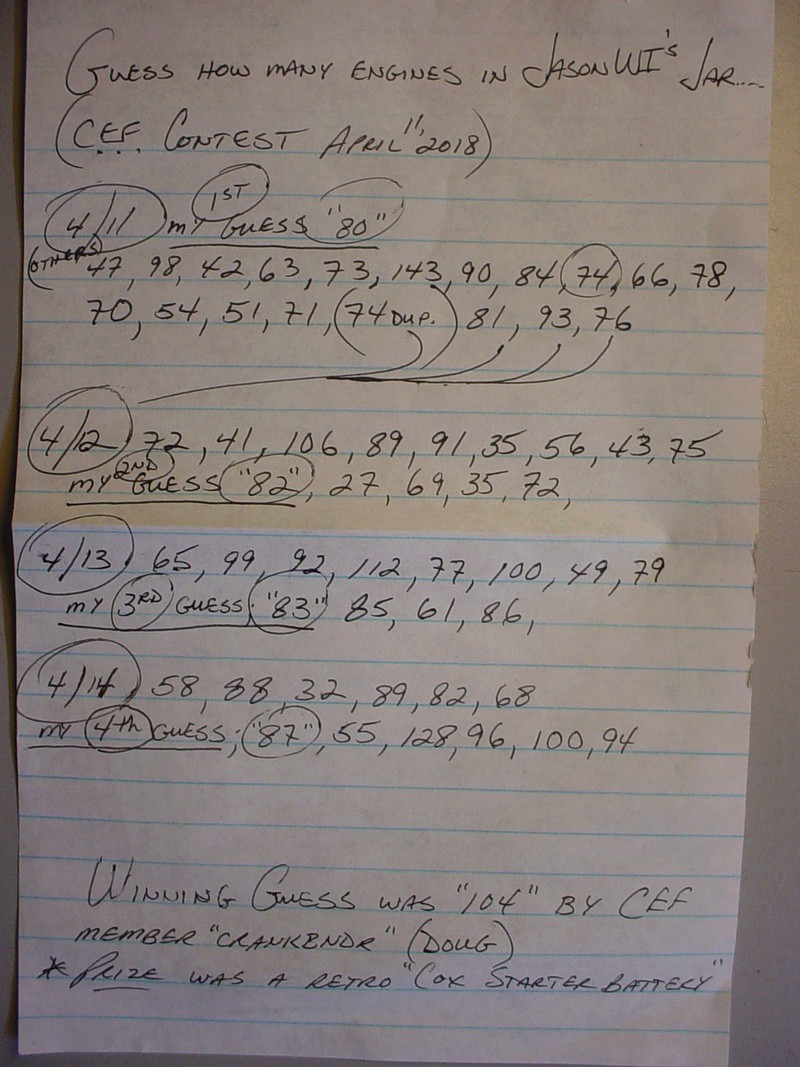 GUESS HOW MANY ENGINES IN JASONWI'S JAR....
(C.E.F. CONTEST APRIL 11, 2018)
4/11 MY 1ST GUESS "80"
(OTHERS) 47, 98, 42, 63, 73, 143, 90, 84, 74, 66, 78,
70, 54, 51, 71, (74 DUP.) 81, 93, 76
4/12, 72, 41, 106, 89, 91, 35, 56, 43, 75
MY 2ND GUESS "82", 27, 69, 35, 72,
4/13, 65, 99, 92, 112, 77, 100, 49, 79
MY 3RD GUESS: "83" 85, 61, 86,
4/14, 58, 88, 32, 89, 82, 68
MY 4th GUESS; "87", 55, 128, 96, 100, 94
WINNING GUESS WAS "104" BY CEF
MEMBER "CRANKBNDR" (DOUG)
* PRIZE WAS A RETRO "COX STARTER BATTERY"